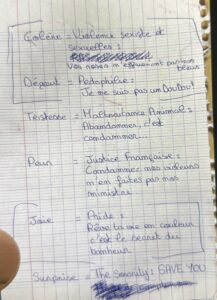 Colère = Violence sexiste et
sexuelles :
Vos m'espionnent pas mon
Dégout = Pédophilie :
Je ne suis pas un DouDou!
Tristesse = Maltraitance Animale :
Abandonner, c'est
condamner...
Peur = Justice Française :
Condamner nos
m'en faites pas nos
ministres
Joie = Aide :
Rêve ta vie en couleur
c'est le secret du
bonheur
Surprise = The : SAVE YOU